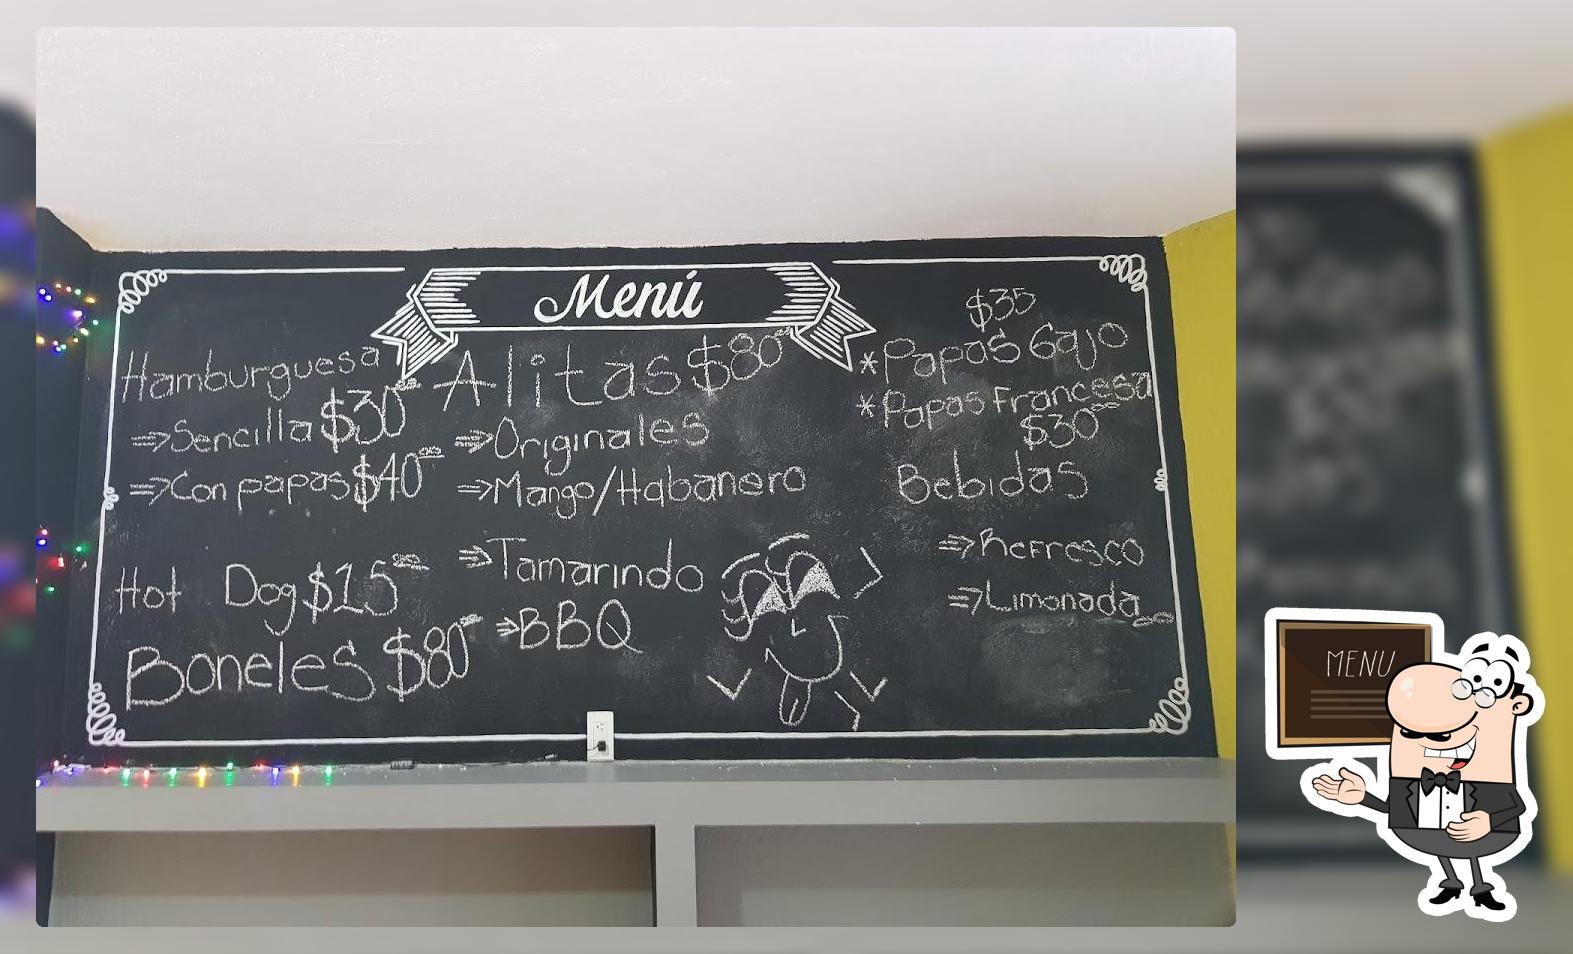 Menú
Hamburguesa
⇒Sencilla $30.00
⇒Con papas $40.00
Hot Dog $15.00
Boneles $80.00
Alitas $80.00
⇒Originales
⇒Mango/Habanero
⇒Tamarindo
⇒BBQ
$35
*Papas Gajo
*Papas Francesa
$30.00
Bebidas
⇒Refresco
⇒Limonada
MENU